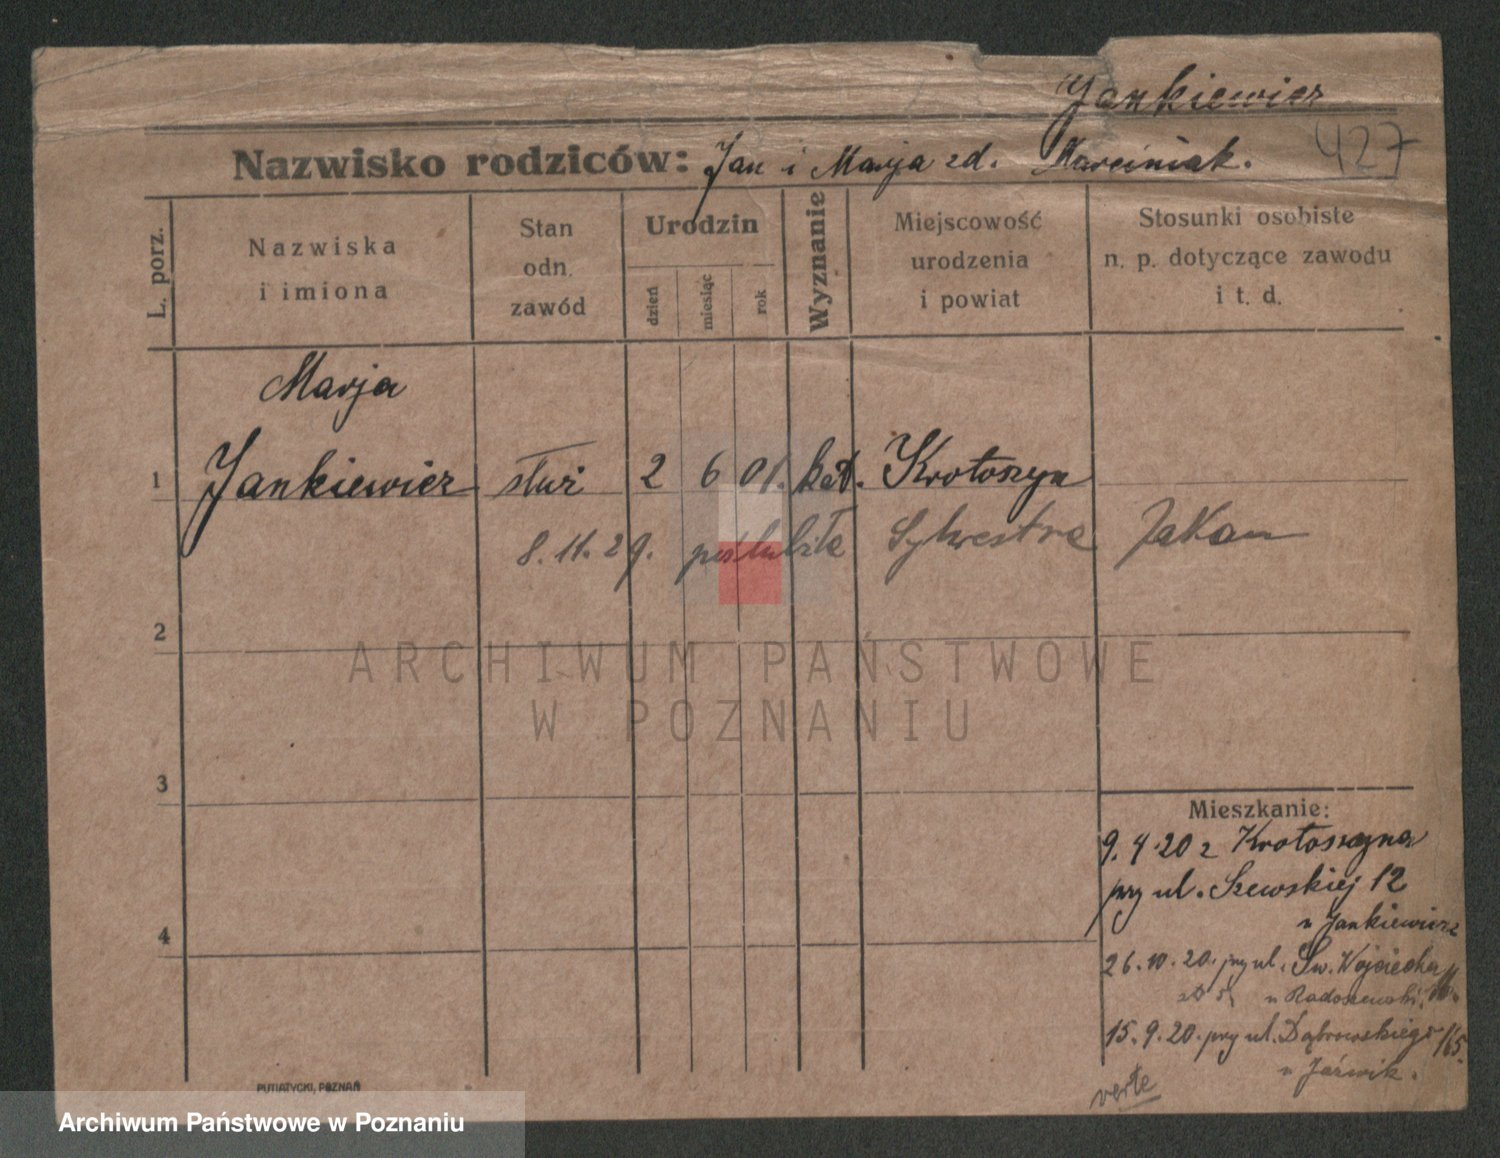 Jankiewicz
427
Nazwisko rodziców: Jan i Marja zd. Marciniak.
L. porz.
Nazwiska
i imiona
Stan
odn.
zawód
Urodzin
dzień
miesiąc
rok
Wyznanie
Miejscowość
urodzenia
i powiat
Stosunki osobiste
n. p. dotyczące zawodu
i t. d.
Marja
1 Jankiewicz służ 2 6 01. kat. Krotoszyn
8.11.29. poślubiła Sylwestra
2
3
4
ARCHIWUM PAŃSTWOWE
W POZNANIU
Mieszkanie:
9.4.20 z Krotoszyna
przy ul. Szewskiej 12
u Jankiewicz
26.10.20. przy ul. Św. Wojciecha
u Radoszewski
15.9.20. przy ul. Dąbrowskiego
u Jaźwik.
verte
PUTIATYCKI, POZNAŃ
Archiwum Państwowe w Poznaniu